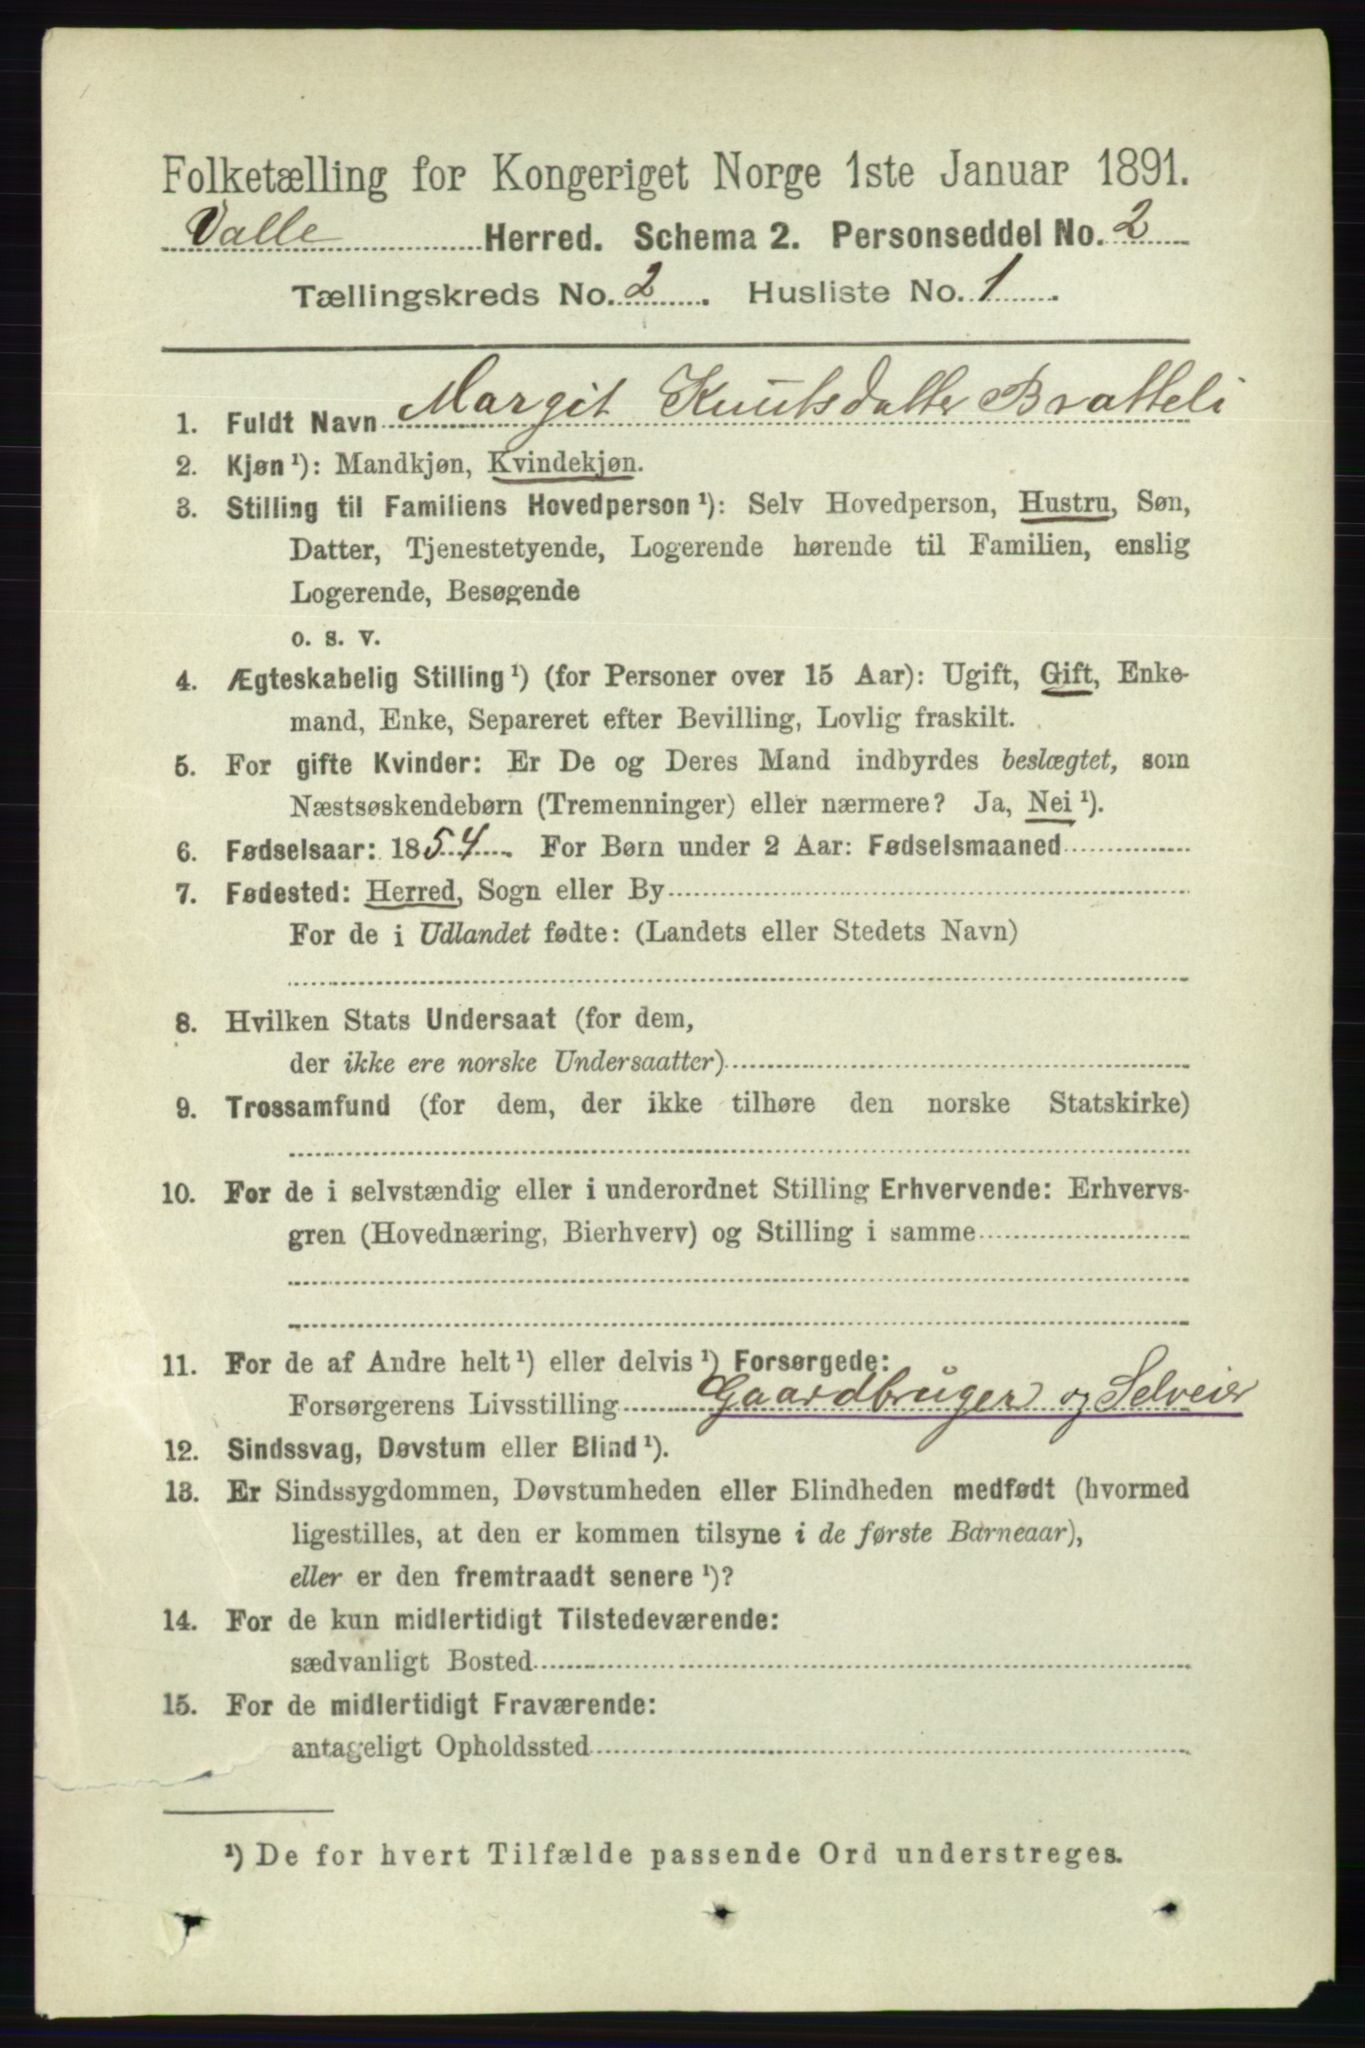 Folketælling for Kongeriget Norge 1ste Januar 1891.
Valle Herred. Schema 2. Personseddel No. 2
Tællingskreds No. 2. Husliste No. 1.
1. Fuldt Navn Margit Knutsdatter Bratteli
2. Kjøn ¹): Mandkjøn, Kvindekjøn.
3. Stilling til Familiens Hovedperson ¹): Selv Hovedperson, Hustru, Søn,
Datter, Tjenestetyende, Logerende hørende til Familien, enslig
Logerende, Besøgende
o. s. v.
4. Ægteskabelig Stilling ¹) (for Personer over 15 Aar): Ugift, Gift, Enke-
mand, Enke, Separeret efter Bevilling, Lovlig fraskilt.
5. For gifte Kvinder: Er De og Deres Mand indbyrdes beslægtet, som
Næstsøskendebørn (Tremenninger) eller nærmere? Ja, Nei ¹).
6. Fødselsaar: 1854. For Børn under 2 Aar: Fødselsmaaned
7. Fødested: Herred, Sogn eller By
For de i Udlandet fødte: (Landets eller Stedets Navn)
8. Hvilken Stats Undersaat (for dem,
der ikke ere norske Undersaatter)
9. Trossamfund (for dem, der ikke tilhøre den norske Statskirke)
10. For de i selvstændig eller i underordnet Stilling Erhvervende: Erhvervs-
gren (Hovednæring, Bierhverv) og Stilling i samme
11. For de af Andre helt ¹) eller delvis ¹) Forsørgede:
Forsørgerens Livsstilling Gaardbruger og Selveier
12. Sindssvag, Døvstum eller Blind ¹).
13. Er Sindssygdommen, Døvstumheden eller Blindheden medfødt (hvormed
ligestilles, at den er kommen tilsyne i de første Barneaar),
eller er den fremtraadt senere ¹)?
14. For de kun midlertidigt Tilstedeværende:
sædvanligt Bosted
15. For de midlertidigt Fraværende:
antageligt Opholdssted
¹) De for hvert Tilfælde passende Ord understreges.